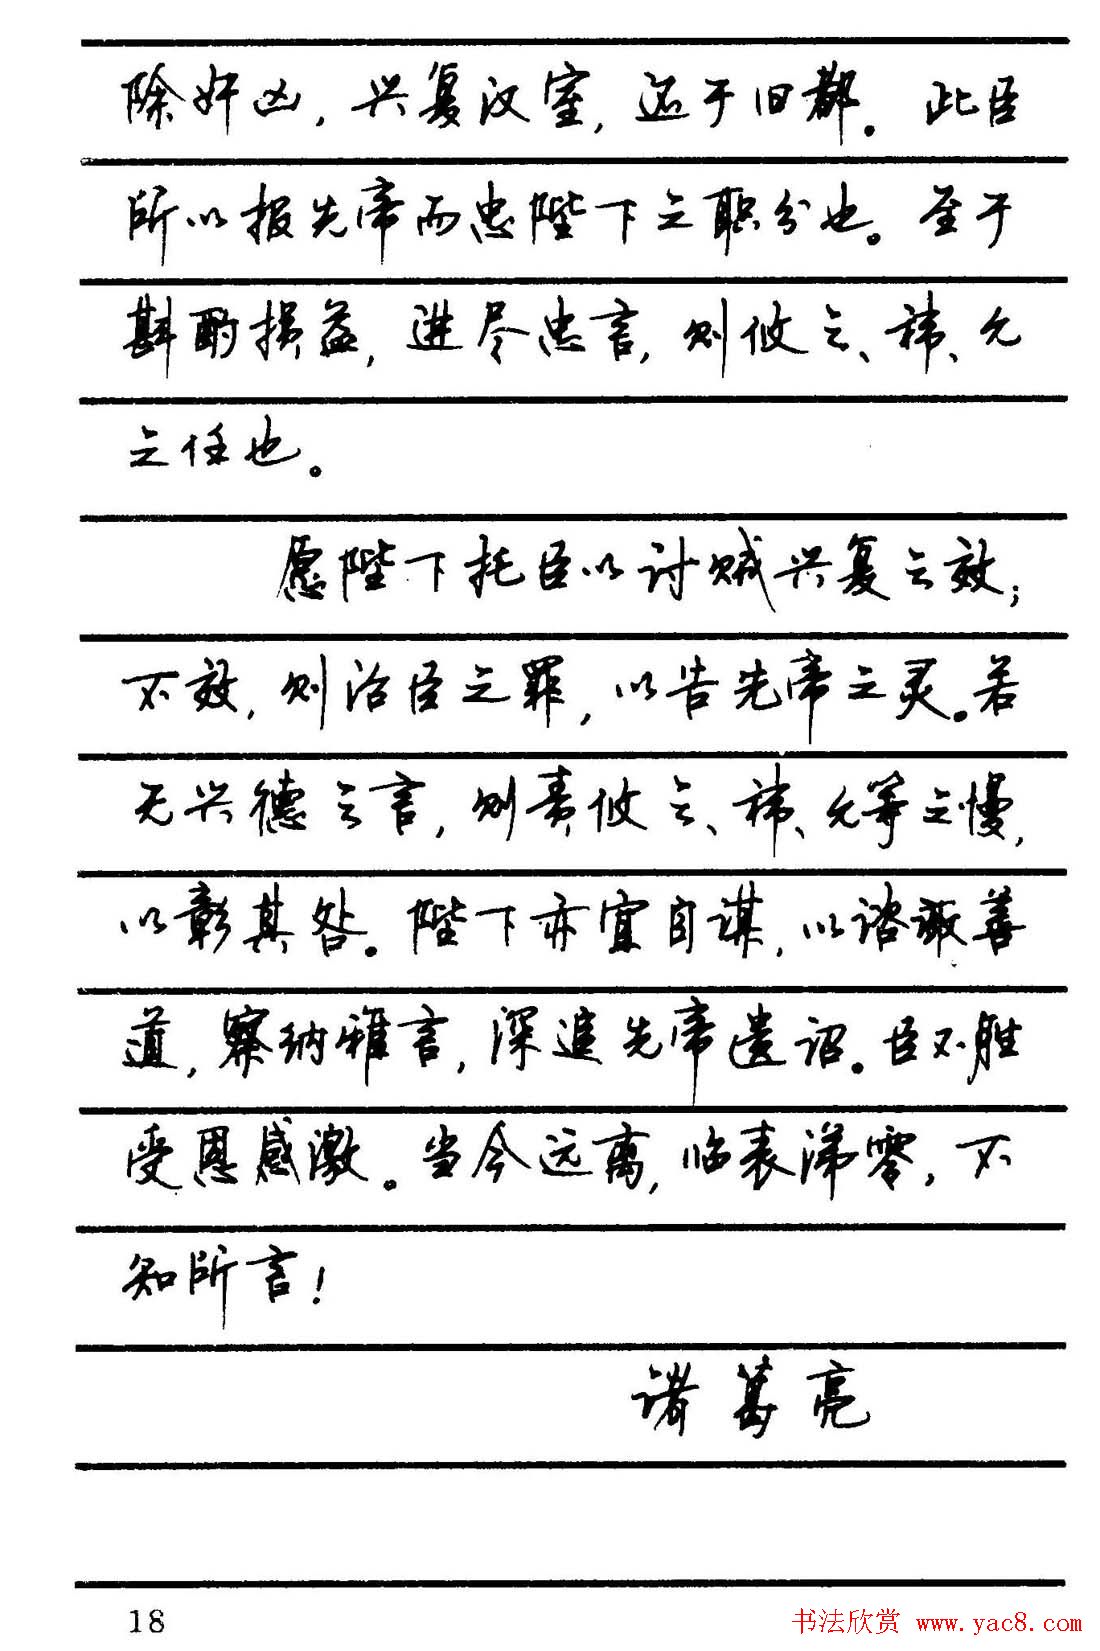 除奸凶，兴复汉室，还于旧都。此臣
所以报先帝而忠陛下之职分也。至于
斟酌损益，进尽忠言，则攸之、祎、允
之任也。
愿陛下托臣以讨贼兴复之效；
不效，则治臣之罪，以告先帝之灵。若
无兴德之言，则责攸之、祎、允等之慢，
以彰其咎。陛下亦宜自谋，以谘诹善
道，察纳雅言，深追先帝遗诏。臣不胜
受恩感激。当今远离，临表涕零，不
知所言！
诸葛亮
18
书法欣赏 www.yac8.com